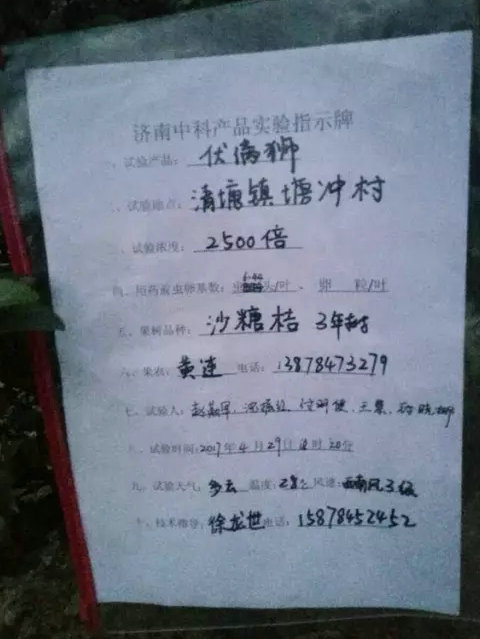 济南中科产品实验指示牌
一、试验产品: 伏满狮
二、试验地点: 清塘镇塘冲村
三、试验浓度: 2500倍
四、施药前虫卵基数: 头/叶、卵 粒/叶
五、果树品种: 沙糖桔 3年树
六、果农: 黄连 电话: 13878473279
七、试验人: 王
八、试验时间: 2017年4月29日 时20分
九、试验天气: 多云 温度: 28℃ 风速: 西南风3级
十、技术指导: 徐龙世 电话: 15878452452